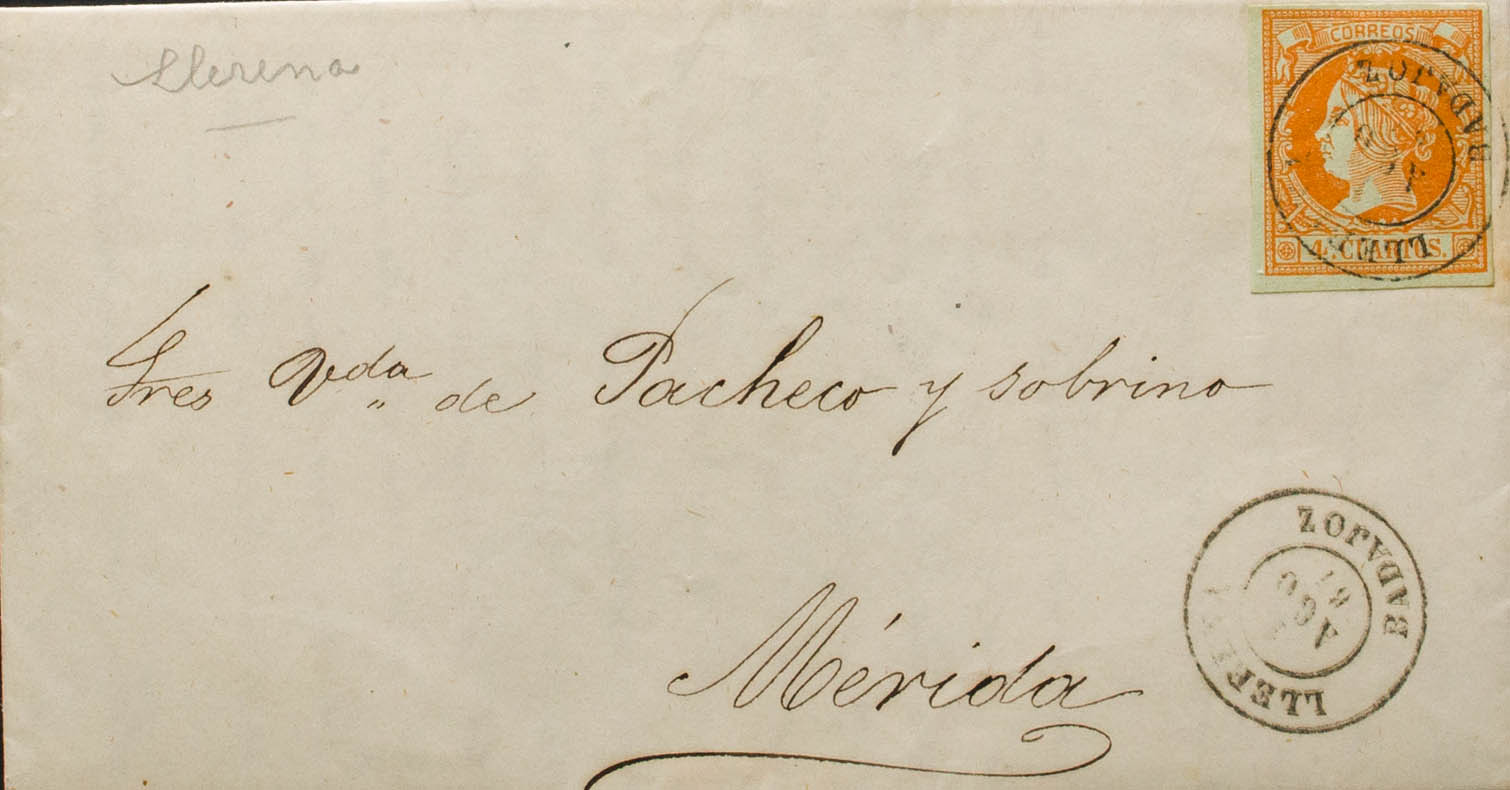 Llerena
CORREOS
BADAJOZ
4 CUARTOS.
Sres Vda de Pacheco y sobrino
Mérida
BADAJOZ
AGO
61